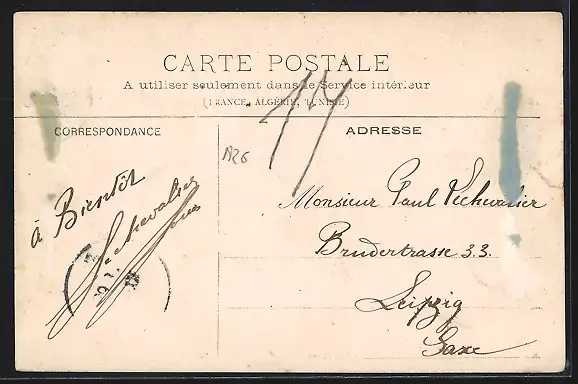 CARTE POSTALE
A utiliser seulement dans le Service intérieur
(FRANCE, ALGÉRIE, TUNISIE)
CORRESPONDANCE
ADRESSE
A26
à Bientôt
Lechevalier
Monsieur Paul Lechevalier
Bruderstrasse 33.
Leipzig
Saxe